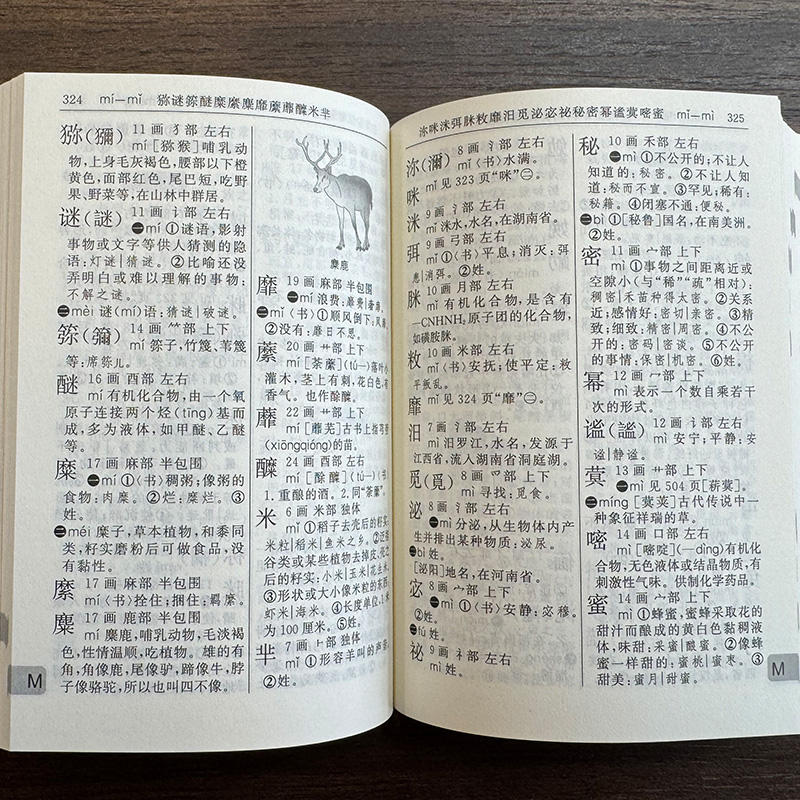 324 mí—mǐ 猕谜䉲醚糜縻麋靡蘼蘼醾米芈
猕(獼) 11 画 犭部 左右
mí [猕猴]哺乳动
物,上身毛灰褐色,腰部以下橙
黄色,面部红色,尾巴短,吃野
果、野菜等,在山林中群居。
谜(謎) 11 画 讠部 左右
㊀mí ①谜语,影射
事物或文字等供人猜测的隐
语:灯谜|猜谜。②比喻还没
弄明白或难以理解的事物:
不解之谜。
㊁mèi 谜(mí)语:猜谜|破谜。
14 画 ⺮部 上下
mí 竹篾、苇篾
等:席
醚 16 画 酉部 左右
mí 有机化合物,由一个氧
原子连接两个烃(tīng)基而
成,多为液体,如甲醚、乙醚
等。
糜 17 画 麻部 半包围
㊀mí ①〈书〉稠粥;像粥的
食物:肉糜。②烂:糜烂。③
姓。
㊁méi 糜子,草本植物,和黍同
类,籽实磨粉后可做食品,没
有黏性。
縻 17 画 麻部 半包围
mí〈书〉拴住;捆住:羁縻。
麋 17 画 鹿部 半包围
mí 麋鹿,哺乳动物,毛淡褐
色,性情温顺,吃植物。雄的有
角,角像鹿,尾像驴,蹄像牛,脖
子像骆驼,所以也叫四不像。
麋鹿
靡 19 画 麻部 半包围
㊀mí 浪费:靡费|奢靡。
㊁mǐ〈书〉①顺风倒下:风靡。
②没有:靡日不思。
蘼 20 画 艹部 上下
mí [荼蘼](tú—)落叶小
灌木,茎上有刺,花白色,有
香气。也作酴醾。
蘼 22 画 艹部 上下
mí [蘼芜]古书上指芎䓖
(xiōngqióng)的苗。
醾 24 画 酉部 左右
mí [酴醾](tú—)〈书〉
1.重酿的酒。2.同“荼蘼”。
米 6 画 米部 独体
mǐ ①稻子去壳后的籽实:
米粒|稻米|鱼米之乡。②泛指
谷类或某些植物去掉皮、壳之
后的籽实:小米|玉米|花生米。
③形状或大小像米粒的东西:
虾米|海米。④长度单位,1米
为 100 厘米。⑤姓。
芈 7 画 ⺊部 独体
mǐ ①形容羊叫的声音。
②姓。
M
㳽咪洣弭脒敉靡汨觅泌宓祕秘密幂谧蓂嘧蜜 mǐ—mì 325
沵(濔) 8 画 氵部 左右
mǐ〈书〉水满。
咪 mī 见 323 页“咪”㊁。
洣 9 画 氵部 左右
mǐ 洣水,水名,在湖南省。
弭 9 画 弓部 左右
mǐ ①〈书〉平息;消灭:弭
患|消弭。②姓。
脒 10 画 月部 左右
mǐ 有机化合物,是含有
—CNHNH₂原子团的化合物,
如磺胺脒。
敉 10 画 米部 左右
mǐ〈书〉安抚;使平定:敉
平叛乱。
靡 mǐ 见 324 页“靡”㊁。
汨 7 画 氵部 左右
mì 汨罗江,水名,发源于
江西省,流入湖南省洞庭湖。
觅(覓) 8 画 爫部 上下
mì 寻找:觅食。
泌 8 画 氵部 左右
㊀mì 分泌,从生物体内产
生并排出某种物质:泌尿。
㊁bì 姓。
[泌阳]地名,在河南省。
宓 8 画 宀部 上下
㊀mì ①〈书〉安静:宓穆。
②姓。
㊁fú 姓。
祕 9 画 礻部 左右
mì 姓。
秘 10 画 禾部 左右
㊀mì ①不公开的;不让人
知道的:秘密。②不让人知
道:秘而不宣。③罕见;稀有:
秘籍。④闭塞不通:便秘。
㊁bì ①[秘鲁]国名,在南美洲。
②姓。
密 11 画 宀部 上下
mì ①事物之间距离近或
空隙小(与“稀”“疏”相对):
稠密|禾苗种得太密。②关系
近;感情好:密切|亲密。③精
致;细致:精密|周密。④不公
开的:密码|密谈。⑤不公开
的事情:保密|机密。⑥姓。
幂 12 画 冖部 上下
mì 表示一个数自乘若干
次的形式。
谧(謐) 12 画 讠部 左右
mì 安宁;平静:安
谧|静谧。
蓂 13 画 艹部 上下
㊀mì 见 504 页[菥蓂]。
㊁míng [蓂荚]古代传说中一
种象征祥瑞的草。
嘧 14 画 口部 左右
mì [嘧啶](—dìng)有机化
合物,无色液体或结晶物质,有
刺激性气味。供制化学药品。
蜜 14 画 宀部 上下
mì ①蜂蜜,蜜蜂采取花的
甜汁而酿成的黄白色黏稠液
体,味甜:采蜜|酿蜜。②像蜂
蜜一样甜的:蜜桃|蜜枣。③
甜美:蜜月|甜蜜。
M